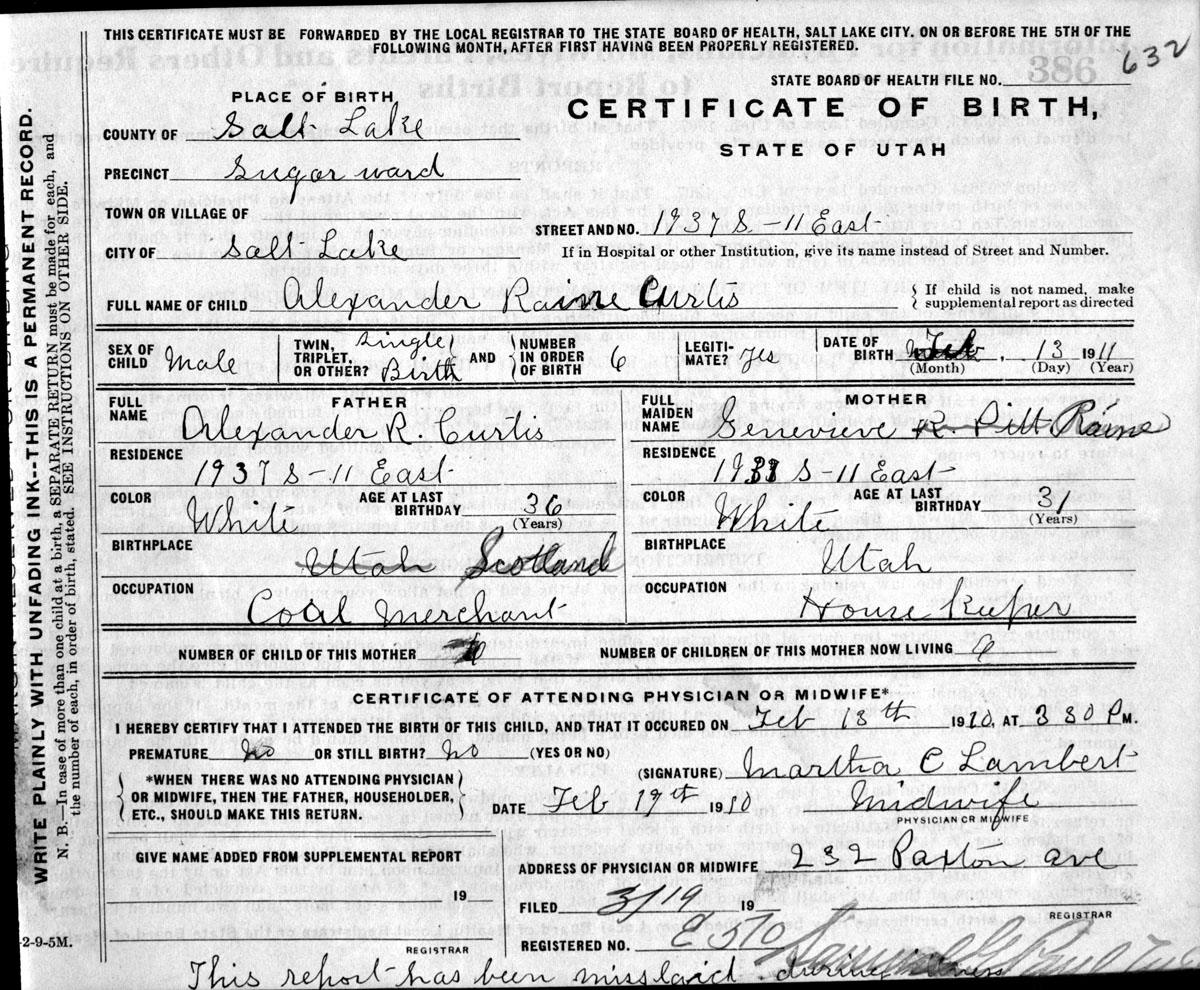 THIS CERTIFICATE MUST BE FORWARDED BY THE LOCAL REGISTRAR TO THE STATE BOARD OF HEALTH, SALT LAKE CITY. ON OR BEFORE THE 5TH OF THE
FOLLOWING MONTH, AFTER FIRST HAVING BEEN PROPERLY REGISTERED.
386
632
STATE BOARD OF HEALTH FILE NO.
PLACE OF BIRTH
CERTIFICATE OF BIRTH,
COUNTY OF Salt Lake
STATE OF UTAH
PRECINCT Sugar ward
TOWN OR VILLAGE OF
STREET AND NO. 1937 S - 11 East
CITY OF Salt Lake
If in Hospital or other Institution, give its name instead of Street and Number.
FULL NAME OF CHILD Alexander Raine Curtis
If child is not named, make
supplemental report as directed
SEX OF CHILD Male
TWIN, TRIPLET, OR OTHER? Single Birth AND NUMBER IN ORDER OF BIRTH 6
LEGITIMATE? yes
DATE OF BIRTH Feb, 13 1911
(Month) (Day) (Year)
FATHER
FULL NAME Alexander R. Curtis
RESIDENCE
1937 S - 11 East
COLOR White AGE AT LAST BIRTHDAY 36
(Years)
BIRTHPLACE
Utah Scotland
OCCUPATION
Coal Merchant
MOTHER
FULL MAIDEN NAME Genevieve R. Pitt Raine
RESIDENCE
1937 S - 11 East
COLOR White AGE AT LAST BIRTHDAY 31
(Years)
BIRTHPLACE
Utah
OCCUPATION
House Keeper
NUMBER OF CHILD OF THIS MOTHER 6
NUMBER OF CHILDREN OF THIS MOTHER NOW LIVING 6
CERTIFICATE OF ATTENDING PHYSICIAN OR MIDWIFE*
I HEREBY CERTIFY THAT I ATTENDED THE BIRTH OF THIS CHILD, AND THAT IT OCCURED ON Feb 13th 1910, AT 3 30 P M.
PREMATURE No OR STILL BIRTH? No (YES OR NO)
(SIGNATURE) Martha C Lambert
*WHEN THERE WAS NO ATTENDING PHYSICIAN
OR MIDWIFE, THEN THE FATHER, HOUSEHOLDER,
ETC., SHOULD MAKE THIS RETURN.
DATE Feb 19th 1910 Midwife
PHYSICIAN OR MIDWIFE
GIVE NAME ADDED FROM SUPPLEMENTAL REPORT
19
REGISTRAR
ADDRESS OF PHYSICIAN OR MIDWIFE 232 Paxton ave
FILED 3/19 19
REGISTRAR
REGISTERED NO.
This report has been misslaid during
2-9-5M.
WRITE PLAINLY WITH UNFADING INK--THIS IS A PERMANENT RECORD.
N. B.—In case of more than one child at a birth, a SEPARATE RETURN must be made for each, and
the number of each, in order of birth, stated. SEE INSTRUCTIONS ON OTHER SIDE.